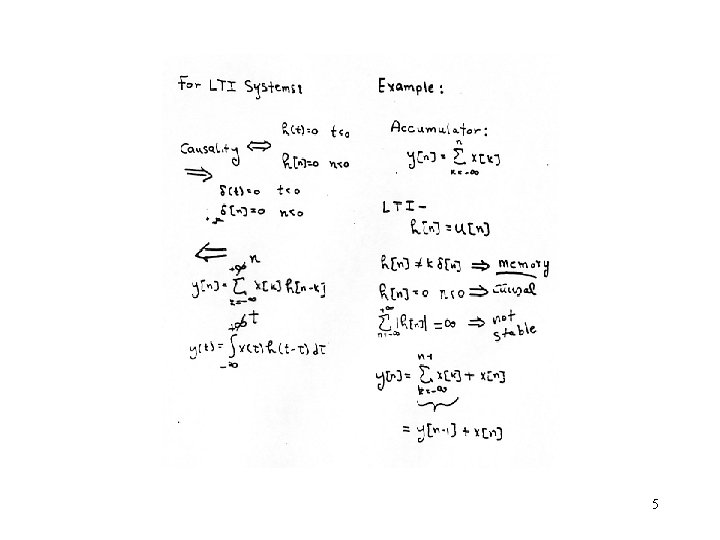 For LTI Systems:
Causality ⇔ h(t)=0 t<0
h[n]=0 n<0
⇒
δ(t)=0 t<0
δ[n]=0 n<0
⇐
y[n]= ∑_{k=-∞}^{+∞ n} x[k] h[n-k]
y(t)= ∫_{-∞}^{+∞ t} x(τ) h(t-τ) dτ
Example:
Accumulator:
y[n]= ∑_{k=-∞}^{n} x[k]
LTI -
h[n]=u[n]
h[n]≠k δ[n] ⇒ memory
h[n]=0 n<0 ⇒ causal
∑_{n=-∞}^{+∞} |h[n]| = ∞ ⇒ not stable
y[n]= ∑_{k=-∞}^{n-1} x[k] + x[n]
= y[n-1] + x[n]
5